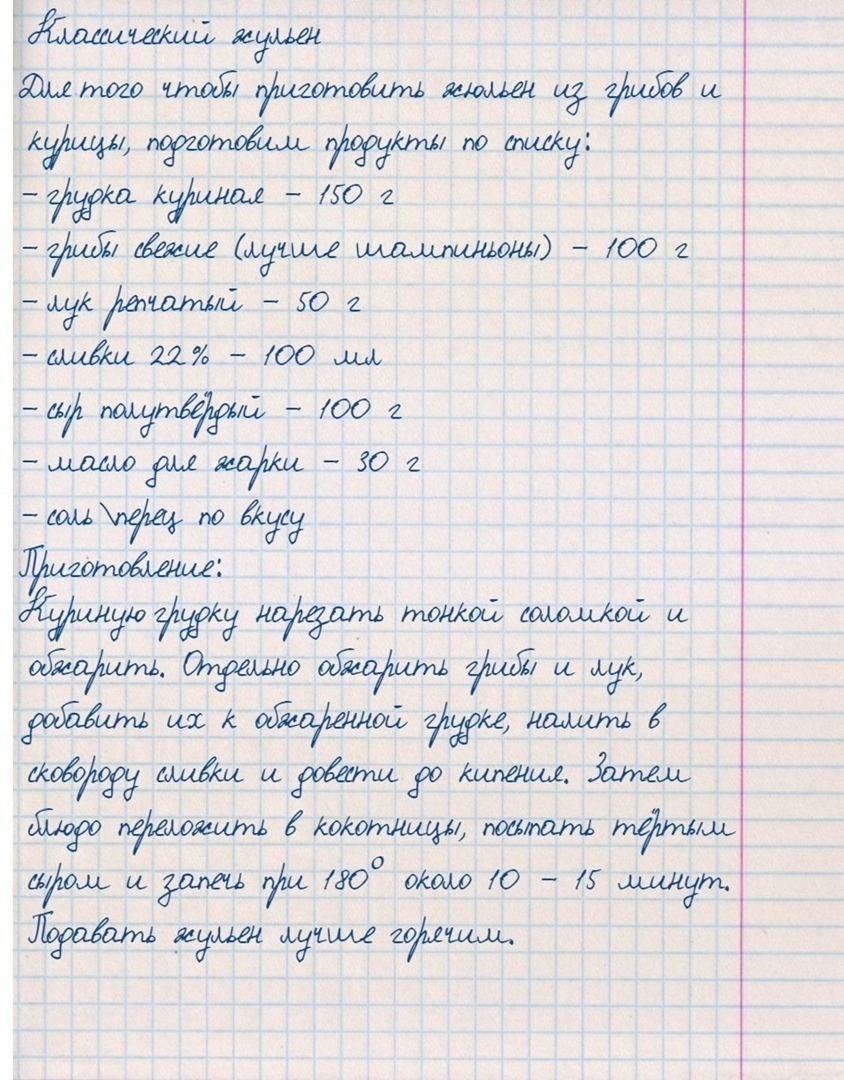 Классический жульен
Для того чтобы приготовить жюльен из грибов и
курицы, подготовим продукты по списку:
- грудка куриная - 150 г
- грибы свежие (лучше шампиньоны) - 100 г
- лук репчатый - 50 г
- сливки 22% - 100 мл
- сыр полутвёрдый - 100 г
- масло для жарки - 30 г
- соль\перец по вкусу
Приготовление:
Куриную грудку нарезать тонкой соломкой и
обжарить. Отдельно обжарить грибы и лук,
добавить их к обжаренной грудке, налить в
сковороду сливки и довести до кипения. Затем
блюдо переложить в кокотницы, посыпать тёртым
сыром и запечь при 180° около 10 - 15 минут.
Подавать жульен лучше горячим.